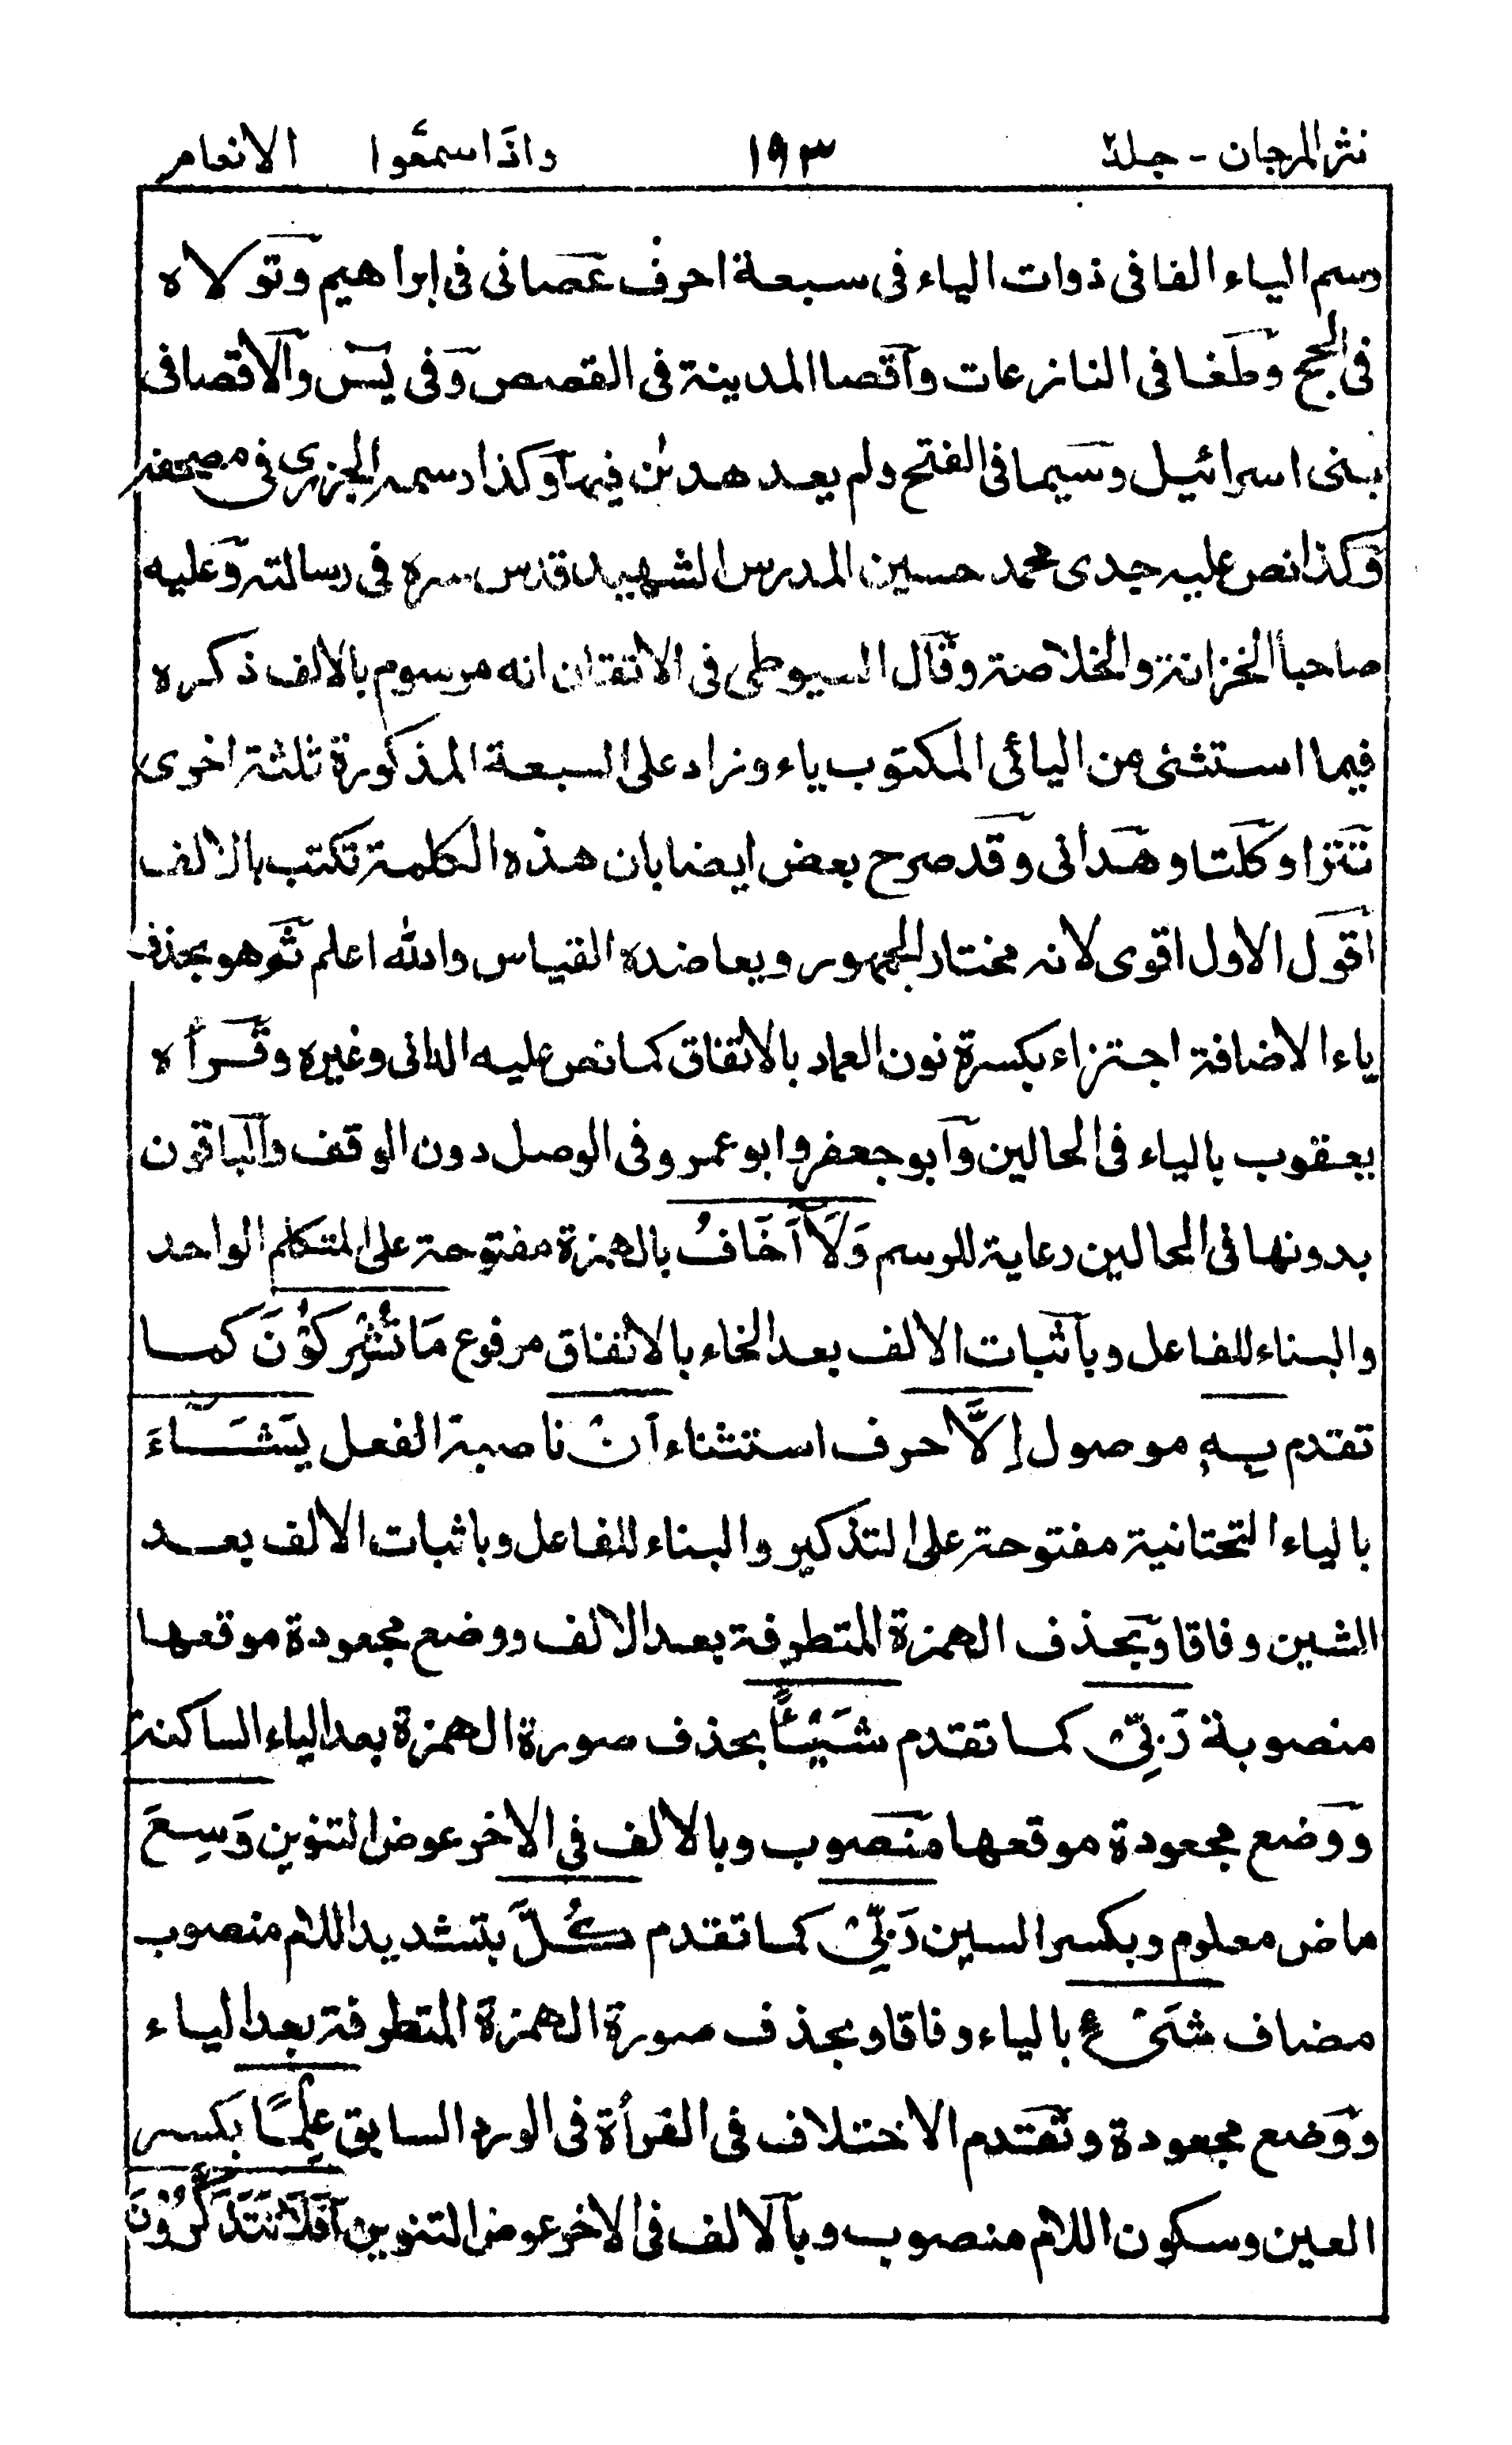 نثر المرجان - جلد٢ ١٩٣ واذا سمعوا الانعام
رسم الياء الفا فى ذوات الياء فى سبعة احرف عصانى فى ابراهيم وتولاه
فى الحج وطغا فى النازعات واقصا المدينة فى القصص وفى يس والاقصا فى
بنى اسرائيل وسيما فى الفتح ولم يعد هدىن فيها وكذا رسمه الجزرى فى مصحفه
وكذا نص عليه جدى محمد حسين المدرس الشهيد قدس سره فى رسالته وعليه
صاحبا الخزانة والخلاصة وقال السيوطى فى الاتقان انه مرسوم بالالف ذكره
فيما استثنى من اليائى المكتوب ياء وزاد على السبعة المذكورة ثلثة اخرى
تترا وكلتا وهدانى وقد صرح بعض ايضا بان هذه الكلمة تكتب بالالف
اقول الاول اقوى لانه مختار الجمهور ويعاضده القياس والله اعلم ثم هو بحذف
ياء الاضافة اجتزاء بكسرة نون العماد بالاتفاق كما نص عليه الدانى وغيره وقرأه
يعقوب بالياء فى الحالين وابو جعفر وابو عمرو فى الوصل دون الوقف والباقون
بدونها فى الحالين رعاية للرسم وَلَآ اَخَافُ بالهمزة مفتوحة على المتكلم الواحد
والبناء للفاعل وباثبات الالف بعد الخاء بالاتفاق مرفوع مَا تُشْرِكُوْنَ كما
تقدم بِهٖ موصول اِلَّا حرف استثناء اَنْ ناصبة الفعل يَشَــآءَ
بالياء التحتانية مفتوحة على التذكير والبناء للفاعل وباثبات الالف بعد
الشين وفاقا وبحذف الهمزة المتطرفة بعد الالف ووضع مجعودة موقعها
منصوبة رَبِّىْ كما تقدم شَيْـًٔا بحذف صورة الهمزة بعد الياء الساكنة
ووضع مجعودة موقعها منصوب وبالالف فى الاخر عوض التنوين وَسِعَ
ماض معلوم وبكسر السين رَبِّىْ كما تقدم كُلَّ بتشديد اللام منصوب
مضاف شَىْءٍ بالياء وفاقا وبحذف صورة الهمزة المتطرفة بعد الياء
ووضع مجعودة وتقدم الاختلاف فى القرأة فى الورد السابق عِلْمًا بكسر
العين وسكون اللام منصوب وبالالف فى الاخر عوض التنوين اَفَلَا تَتَذَكَّرُوْنَ